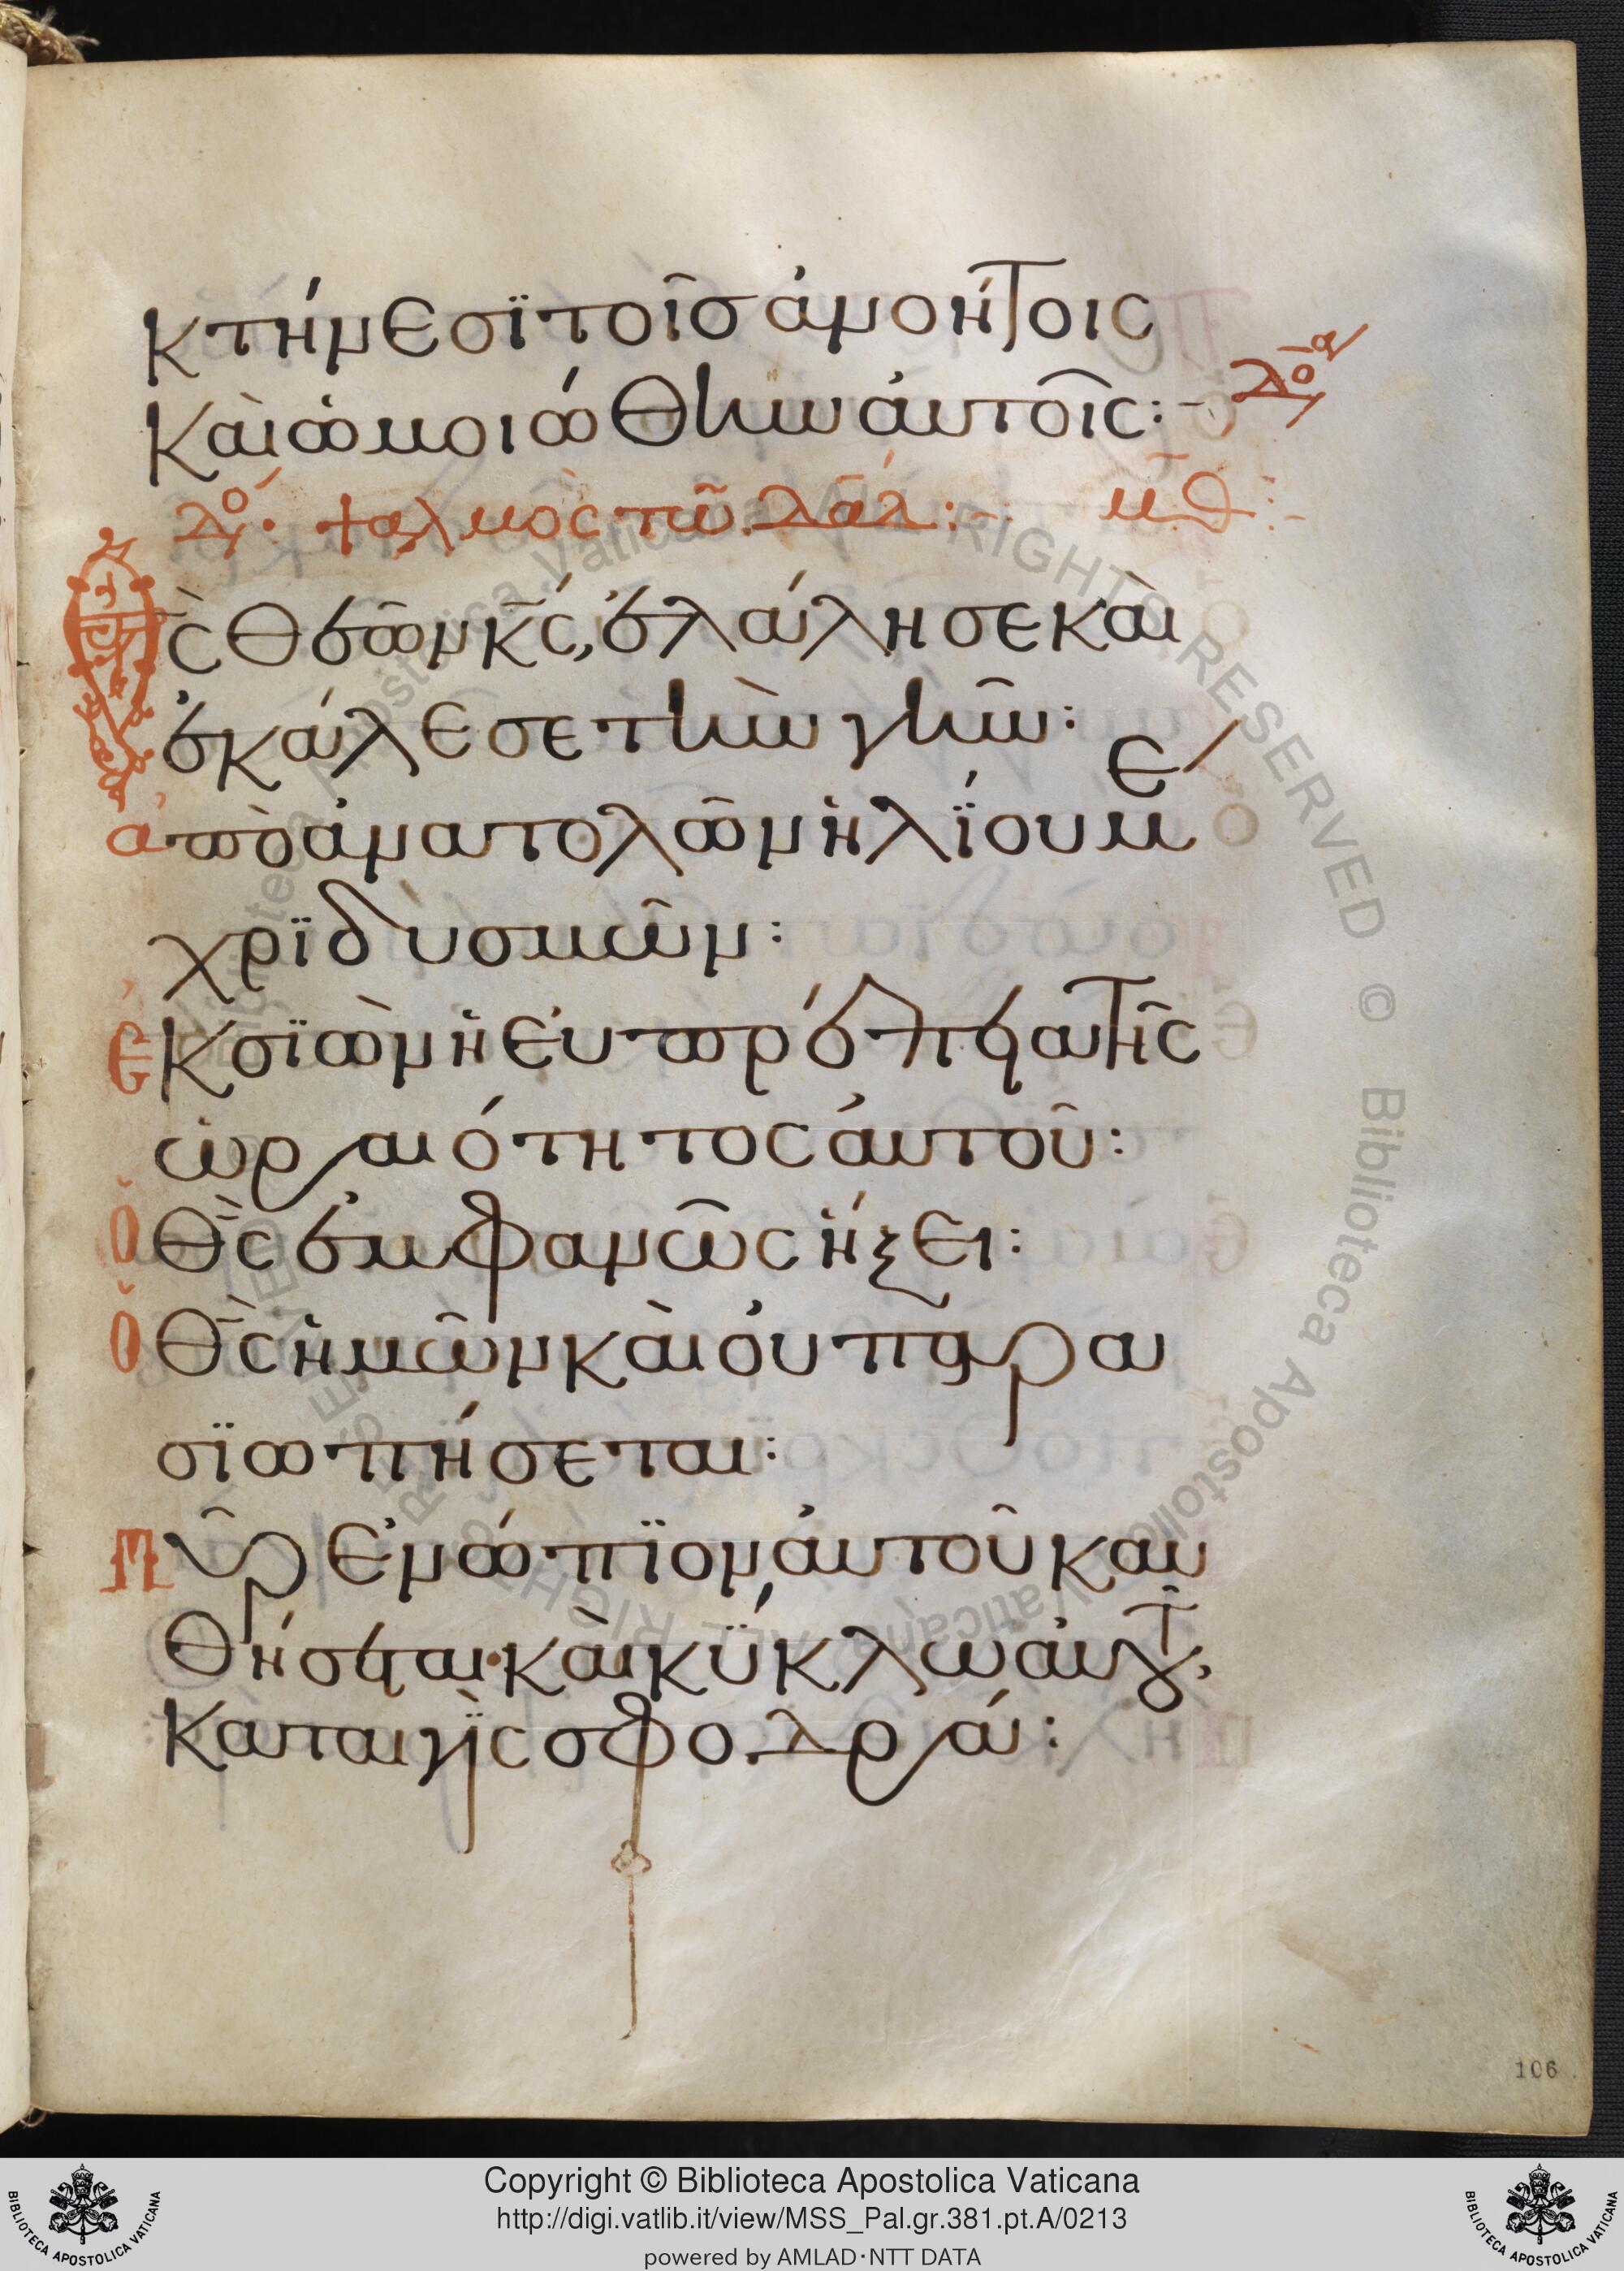 κτήνεσϊ τοῖσ ἀνοήτοις
Καὶ ὡμοιώθην αὐτοῖς:-
ψαλμὸς τῶ δᾱδ:- μ̅θ̅:-
Θ̅ς̀ θεῶν κ̅ς́, ἐλάλησε καὶ
ἐκάλεσε τὴν γῆν:
ἀπὸ ἀνατολῶν ἡλΐου μέ
χρϊ δυσμῶν:
Εκ σϊὼν ἡ ἐυπρέπεια τῆς
ὡραιότητος ἀυτοῦ:
Ὁ θ̅ς̀ ἐμφανῶς ἥξει:
Ὁ θ̅ς̀ ἡμῶν καὶ ὀυ παρα
σϊωπήσεται:
Πῦρ ἐνώπϊον ἀυτοῦ καυ
θήσεται· καὶ κΰκλω ἀυτοῦ,
Καταιγῒς σφοδρά:
106
Copyright © Biblioteca Apostolica Vaticana
http://digi.vatlib.it/view/MSS_Pal.gr.381.pt.A/0213
powered by AMLAD·NTT DATA
BIBLIOTECA APOSTOLICA VATICANA
BIBLIOTECA APOSTOLICA VATICANA